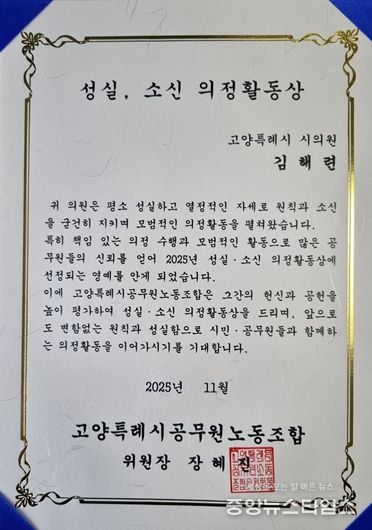 성실, 소신 의정활동상
고양특례시 시의원
김 해 련
귀 의원은 평소 성실하고 열정적인 자세로 원칙과 소신
을 굳건히 지키며 모범적인 의정활동을 펼쳐왔습니다.
특히 책임 있는 의정 수행과 모범적인 활동으로 많은 공
무원들의 신뢰를 얻어 2025년 성실·소신 의정활동상에
선정되는 영예를 안게 되었습니다.
이에 고양특례시공무원노동조합은 그간의 헌신과 공헌을
높이 평가하여 성실·소신 의정활동상을 드리며, 앞으로
도 변함없는 원칙과 성실함으로 시민·공무원들과 함께하
는 의정활동을 이어가시기를 기대합니다.
2025년 11월
고양특례시공무원노동조합
위원장 장 혜 진
보는 발 빠른 뉴스
중앙뉴스타임즈